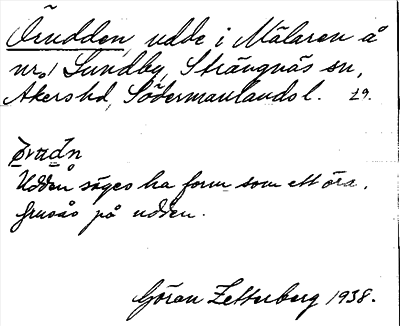 Örudden, udde i Mälaren å
nr 1 Sundby, Strängnäs sn,
Åkers hd, Södermanlands l. 29.
Udden säges ha form som ett öra.
Grusås på udden.
Göran Zetterberg 1938.